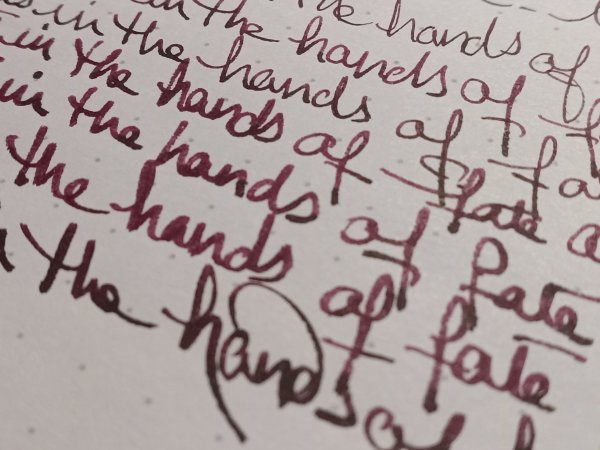 the hands of
in the hands of
in the hands of
in the hands of fate
in the hands of fate
the hands of fate
the hands of